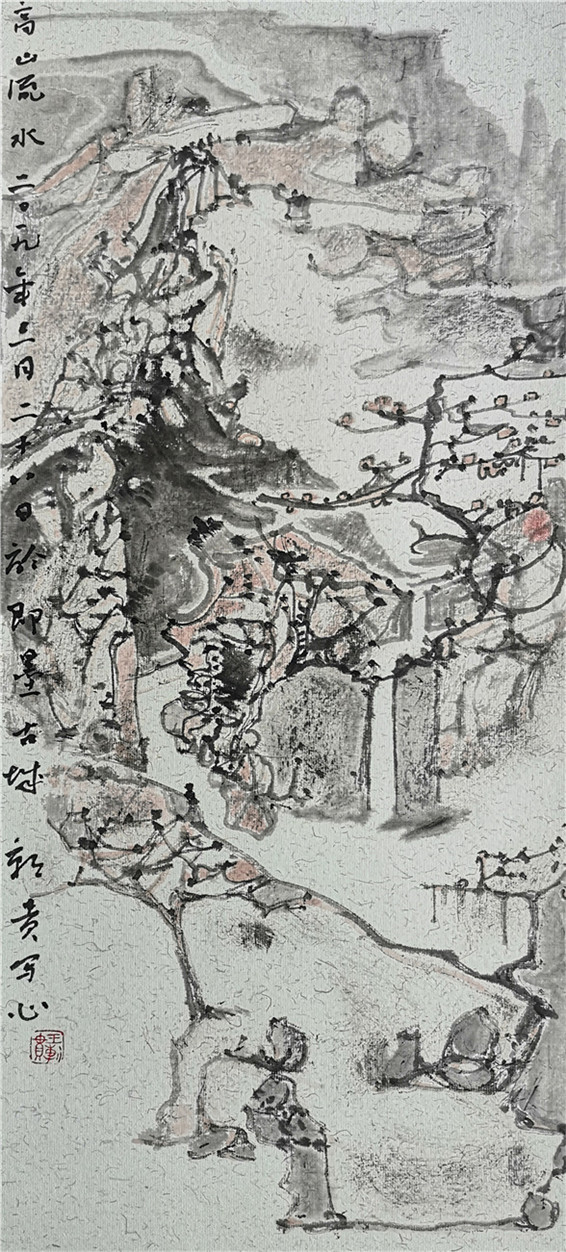 高山流水二〇一九年三月二十八日於即墨古城郭贵写心